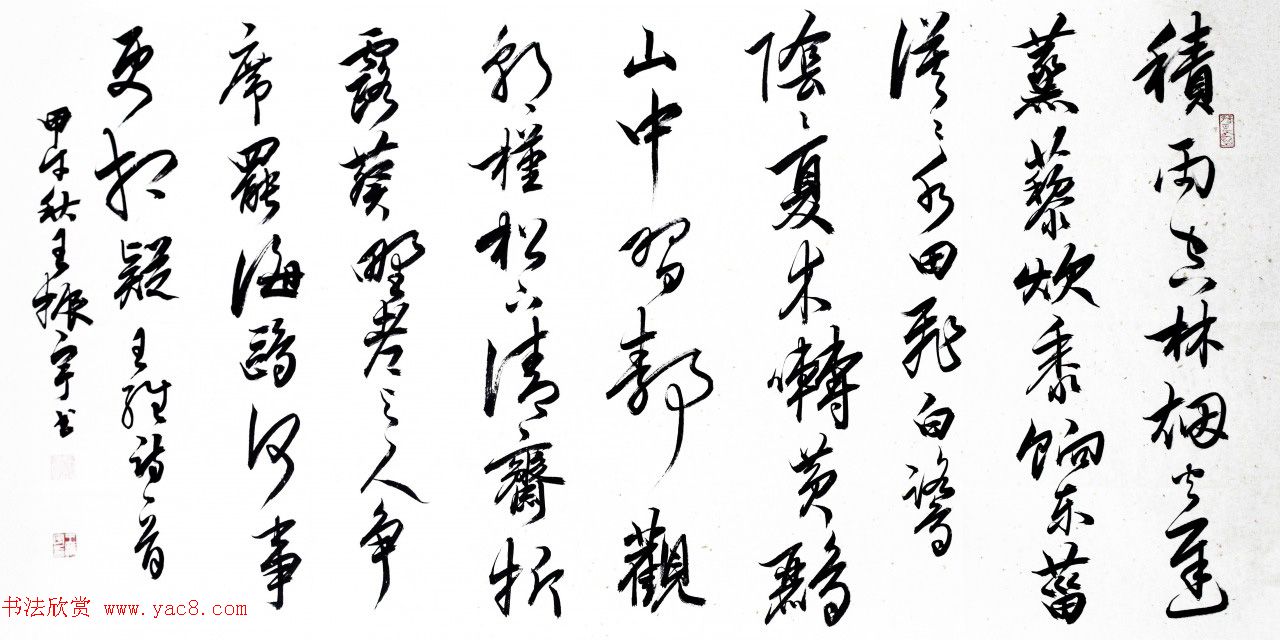 積雨空林烟火遲
蒸藜炊黍餉东菑
漠漠水田飛白鷺
陰陰夏木囀黄鸝
山中習静觀
朝槿松下清齋折
露葵野老与人争
席罷海鷗何事
更相疑 王維詩一首
甲午秋王振宇书
书法欣赏 www.yac8.com